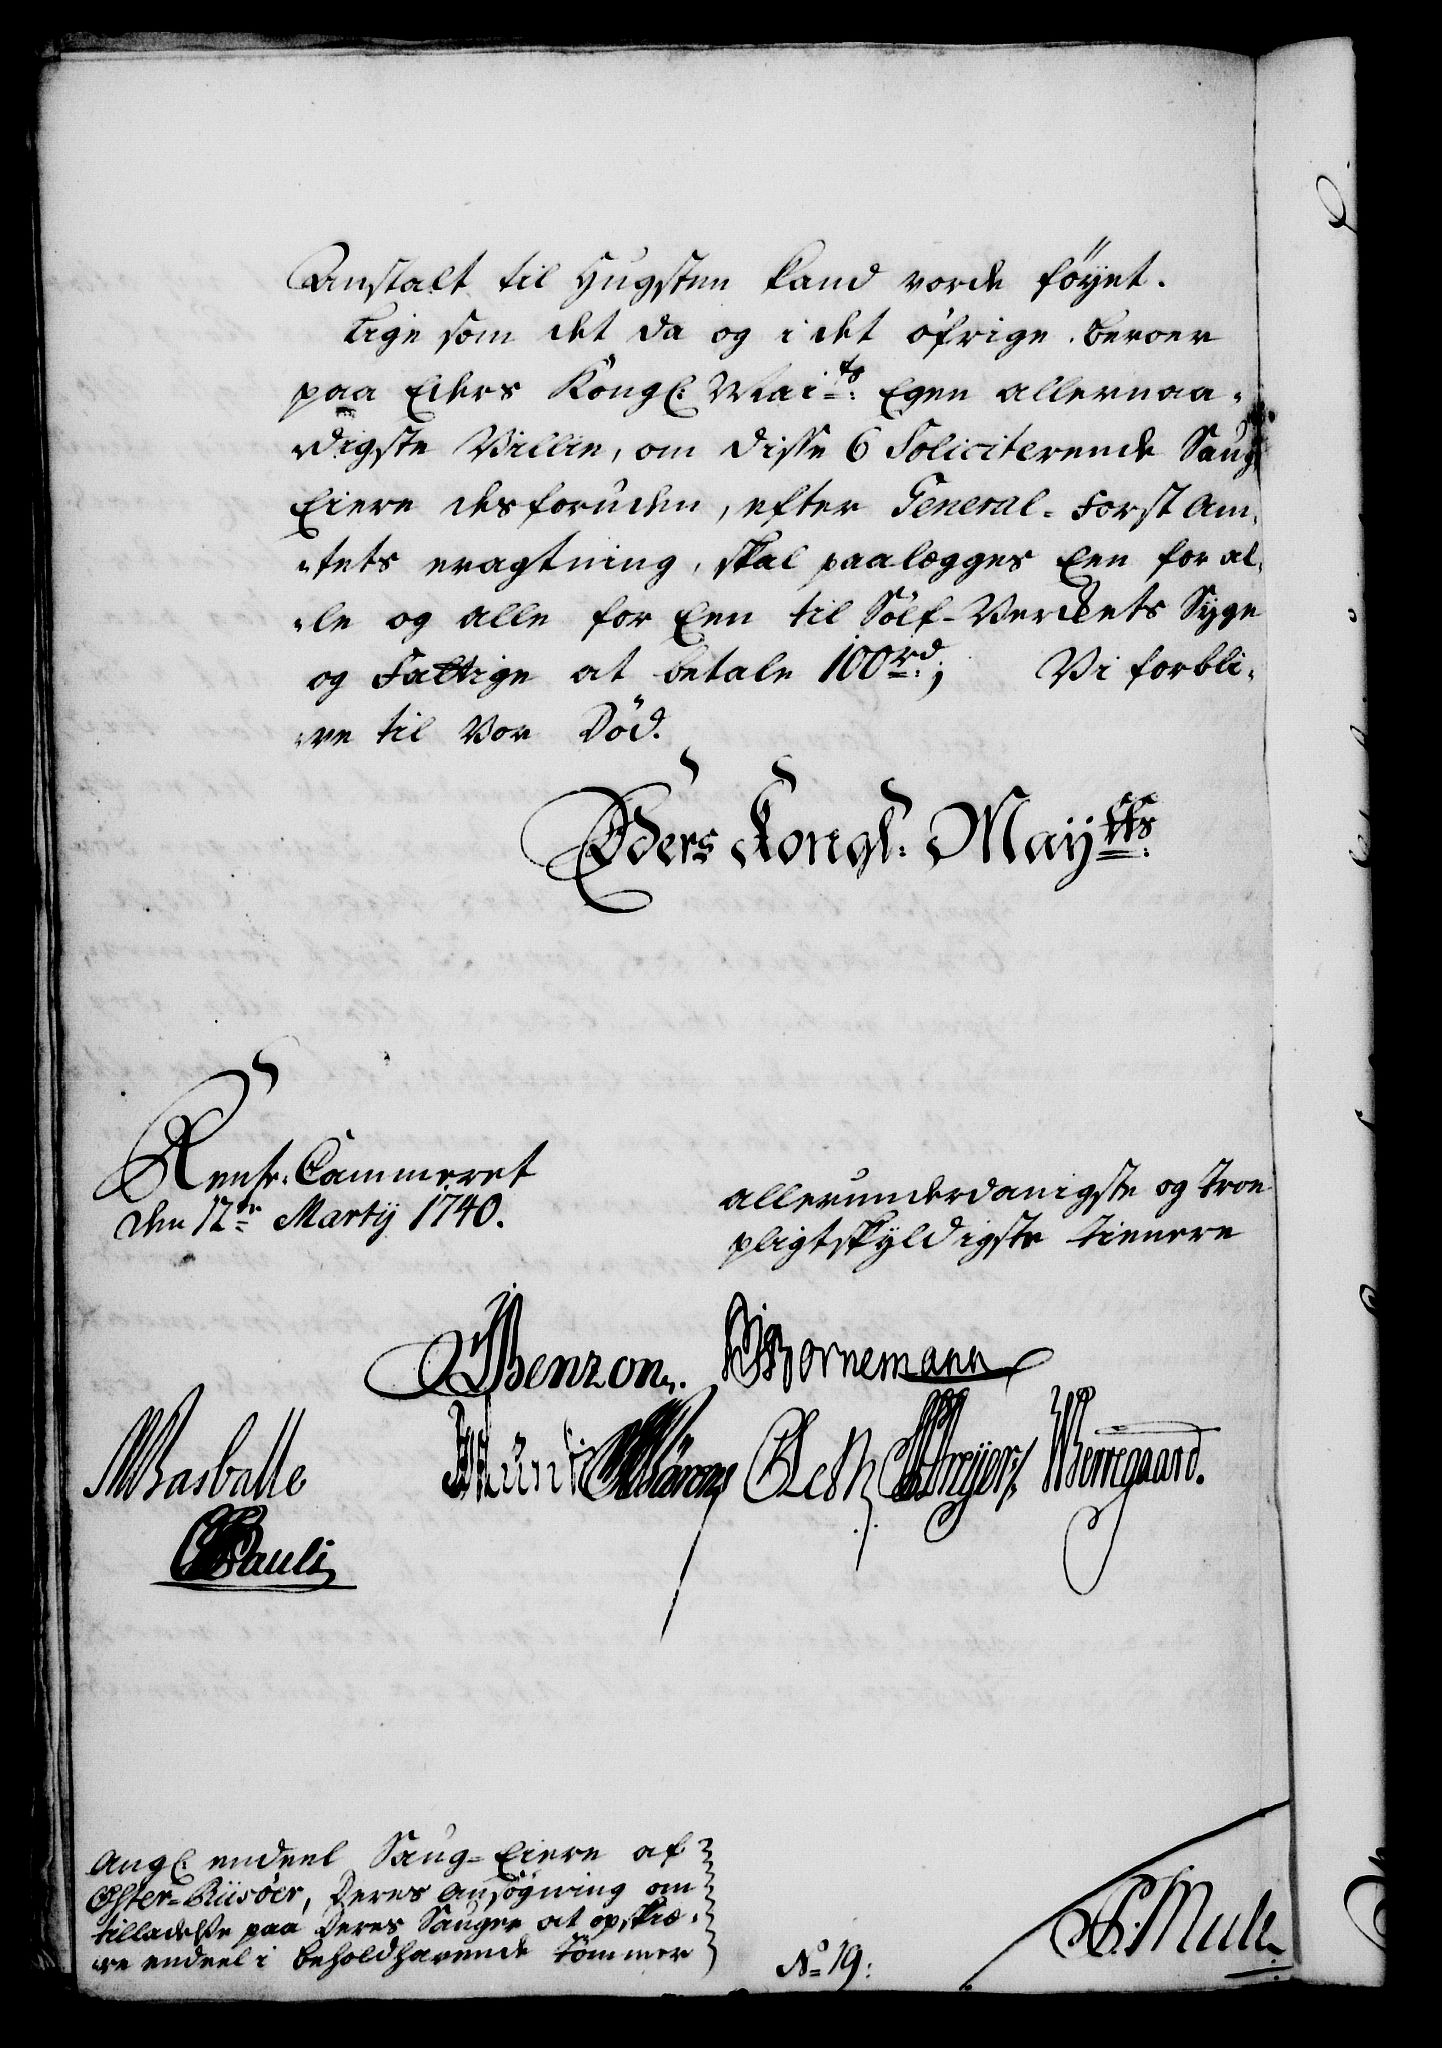 Anstalt til Hugsten kand vorde føyet.
Lige som det da og i det øfrige beroer
paa Eders Kongl: Mai:ts Egen allernaa-
digste Villie, om disse 6 Soliciterende Saug
Eiere desforuden, efter General-Forst Am-
-tets eragtning, skal paalegges Een for al-
-le og alle for Een til Sölf-Verkets Syge
og Fattige at betale 100 rd; Vi forbli-
-ve til Vor Död.
Eders Kongl. Mayts.
Rente-Cammeret
den 12te Martij 1740.
allerunderdanigste og troe
pligtskyldigste tienere
Benzon.
Bornemann
Basballe
Pauli
Berregaard.
Angl. endeel Saug-Eiere af
Øster-Riisöer, deres Ansögning om
tilladelse paa deres Sauger at opskiæ-
re endeel i beholdhavende Tömmer
No 19:
Mule